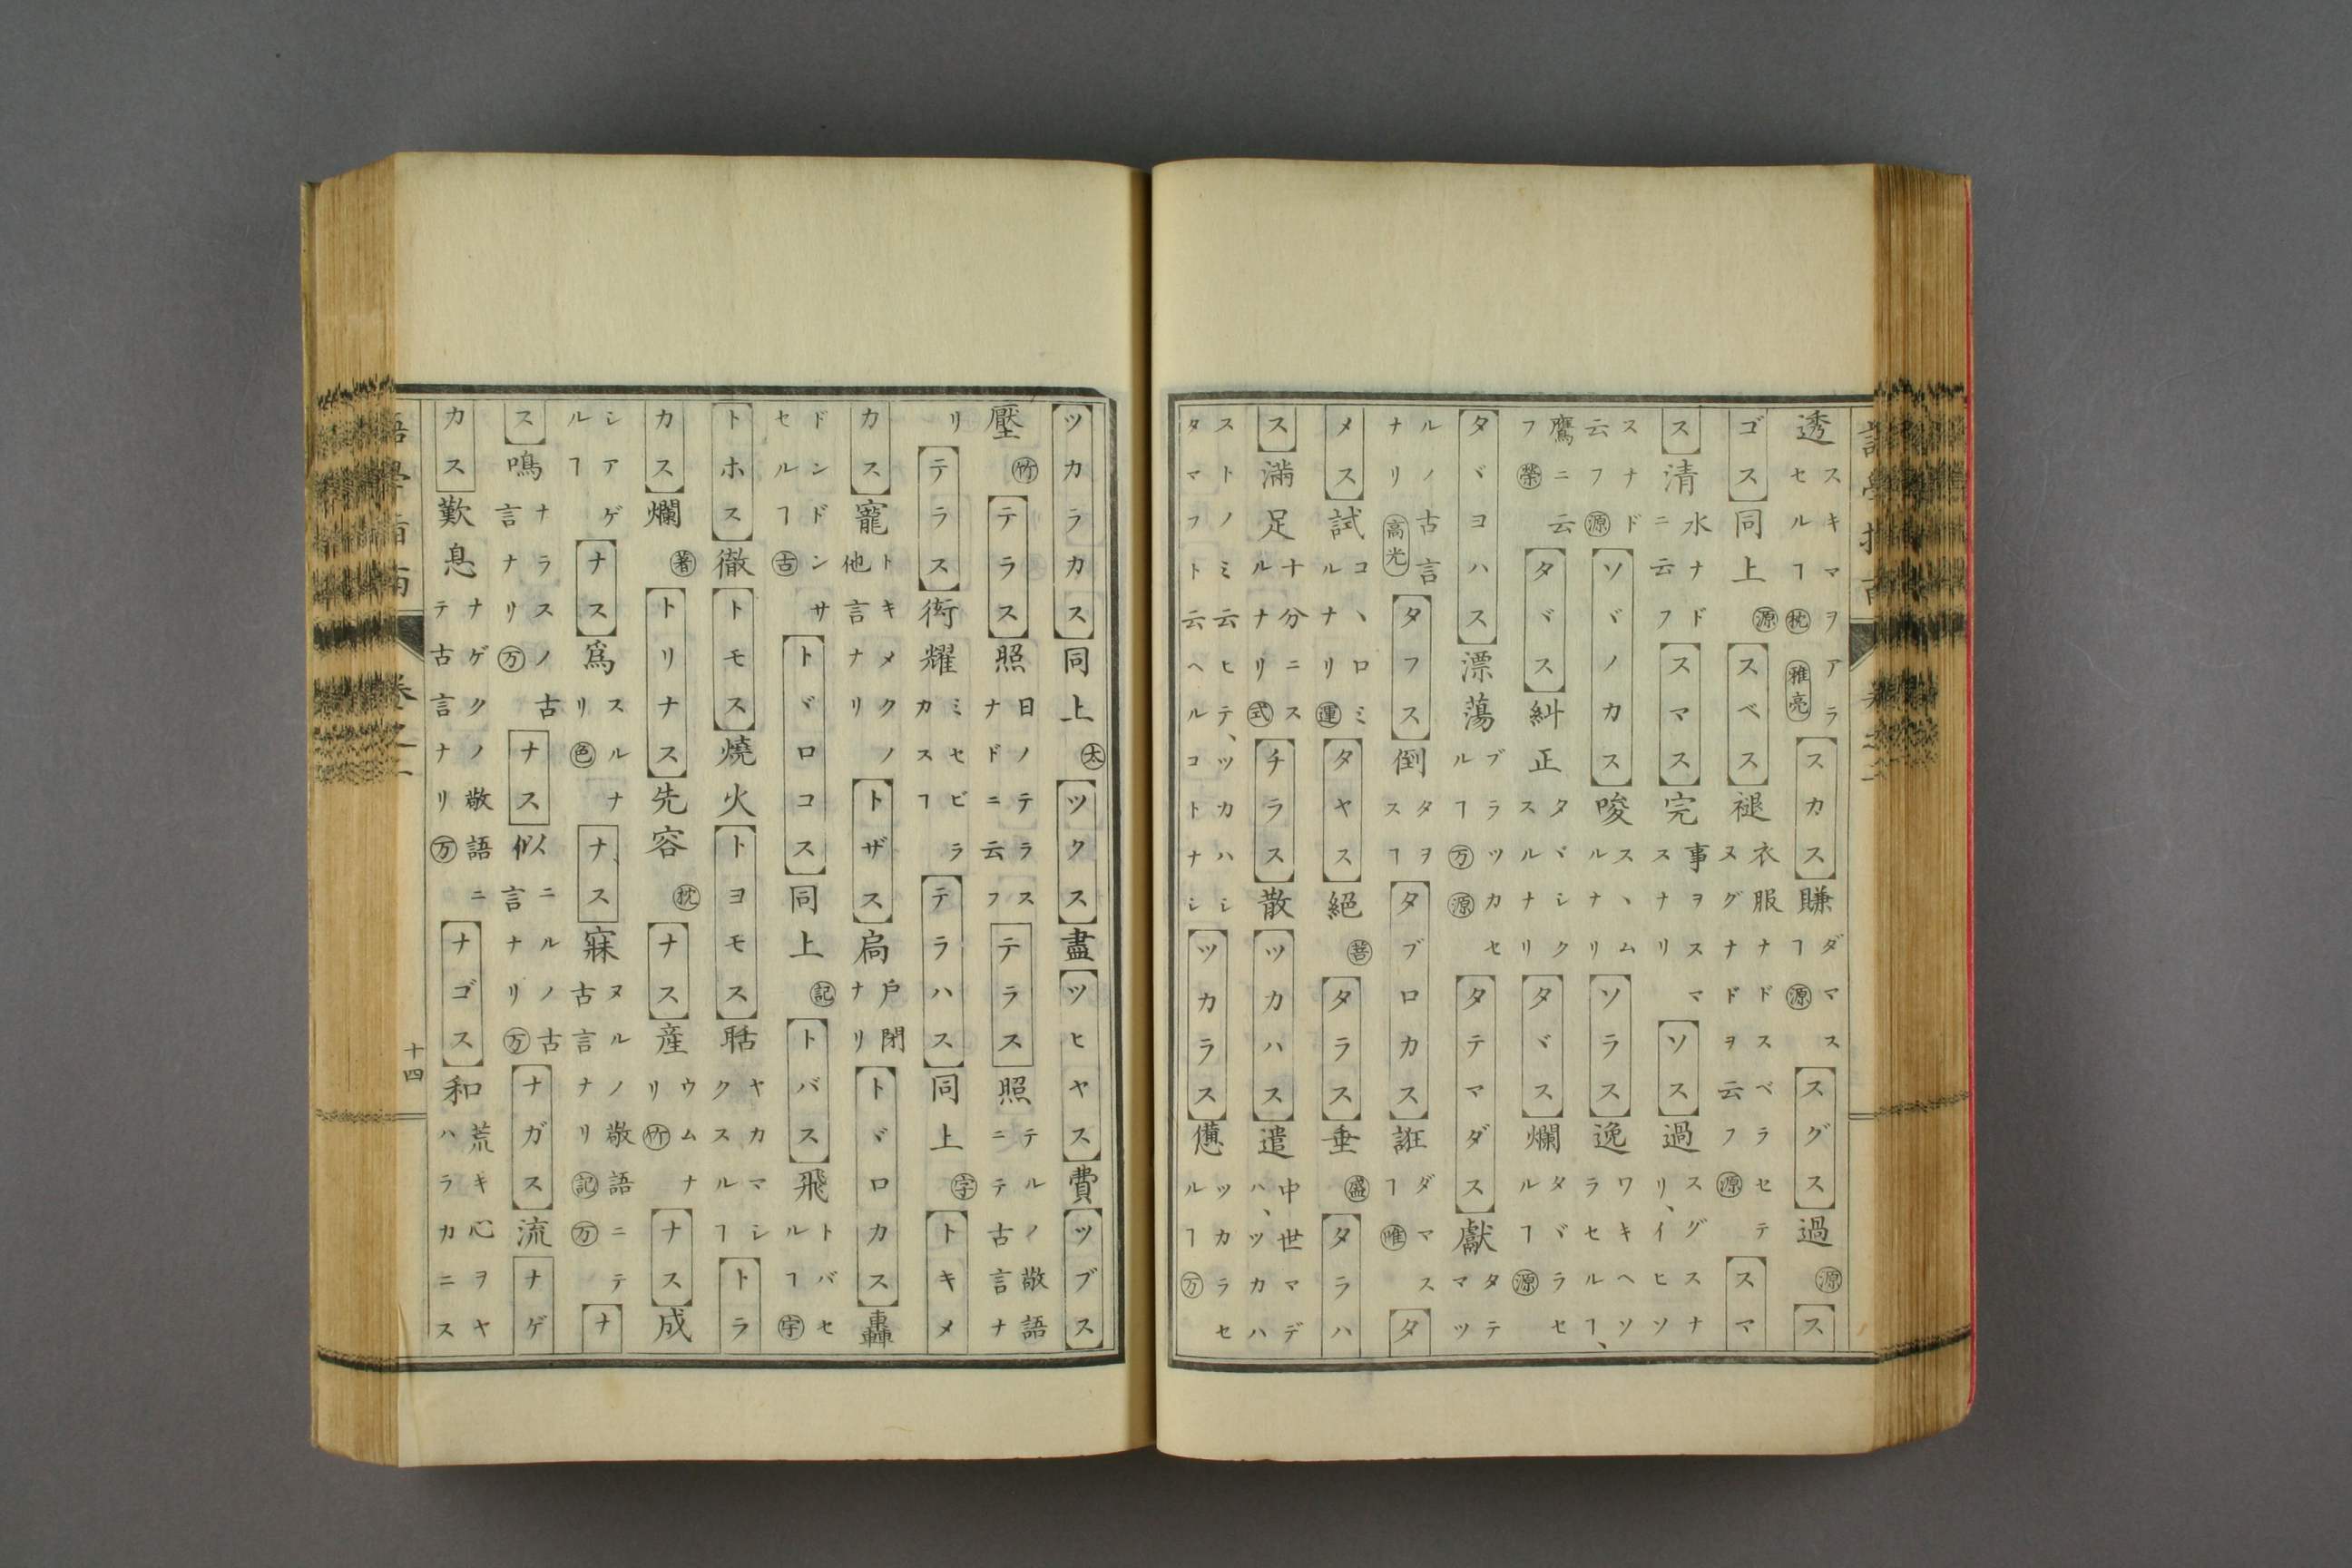 透スキマヲアラセルヿ枕雅亮スカス賺ダマスヿ源スグス過源ス
ゴス同上源スベス褪衣服ナドスベラセテヌグナドヲ云フ源スマ
ス清水ナドニ云フスマス完事ヲスマスナリソス過スグスナリ、イヒソ
スナド云フ源ソヾノカス唆スヽムルナリソラス逸ワキヘソラセルヿ、
鷹ニ云フ榮タヾス糾正タヾシクスルナリタヾス爛タヾラセルヿ源
タヾヨハス漂蕩ブラツカセルヿ万源タテマダス獻タテマツ
ルノ古言ナリ高光タフス倒タヲスヿタブロカス誑ダマスヿ唯タ
メス試コヽロミルナリ運タヤス絕菩タラス垂盛タラハ
ス滿足十分ニスルナリ式チラス散ツカハス遣中世マデハ、ツカハ
ストノミ云ヒテ、ツカハシタマフト云ヘルコトナシツカラス憊ツカラセルヿ万
ツカラカス同上太ツクス盡ツヒヤス費ツブス
壓竹テラス照日ノテラスナドニ云フテラス照テルノ敬語ニテ古言ナ
リテラス衒耀ミセビラカスヿテラハス同上字トキメ
カス寵トキメクノ他言ナリトザス扃戶閉ナリトヾロカス轟
ドンドンサセルヿ古トヾロコス同上記トバス飛トバセルヿ宇
トホス徹トモス燒火トヨモス聒ヤカマシクスルヿトラ
カス爛著トリナス先容枕ナス産ウムナリ竹ナス成
シアゲルヿナス爲スルナリ色ナス寐ヌルノ敬語ニテ古言ナリ記万ナ
ス鳴ナラスノ古言ナリ万ナス似ニルノ古言ナリ万ナガス流ナゲ
カス歎息ナゲクノ敬語ニテ古言ナリ万ナゴス和荒キ心ヲヤハラカニス
十四